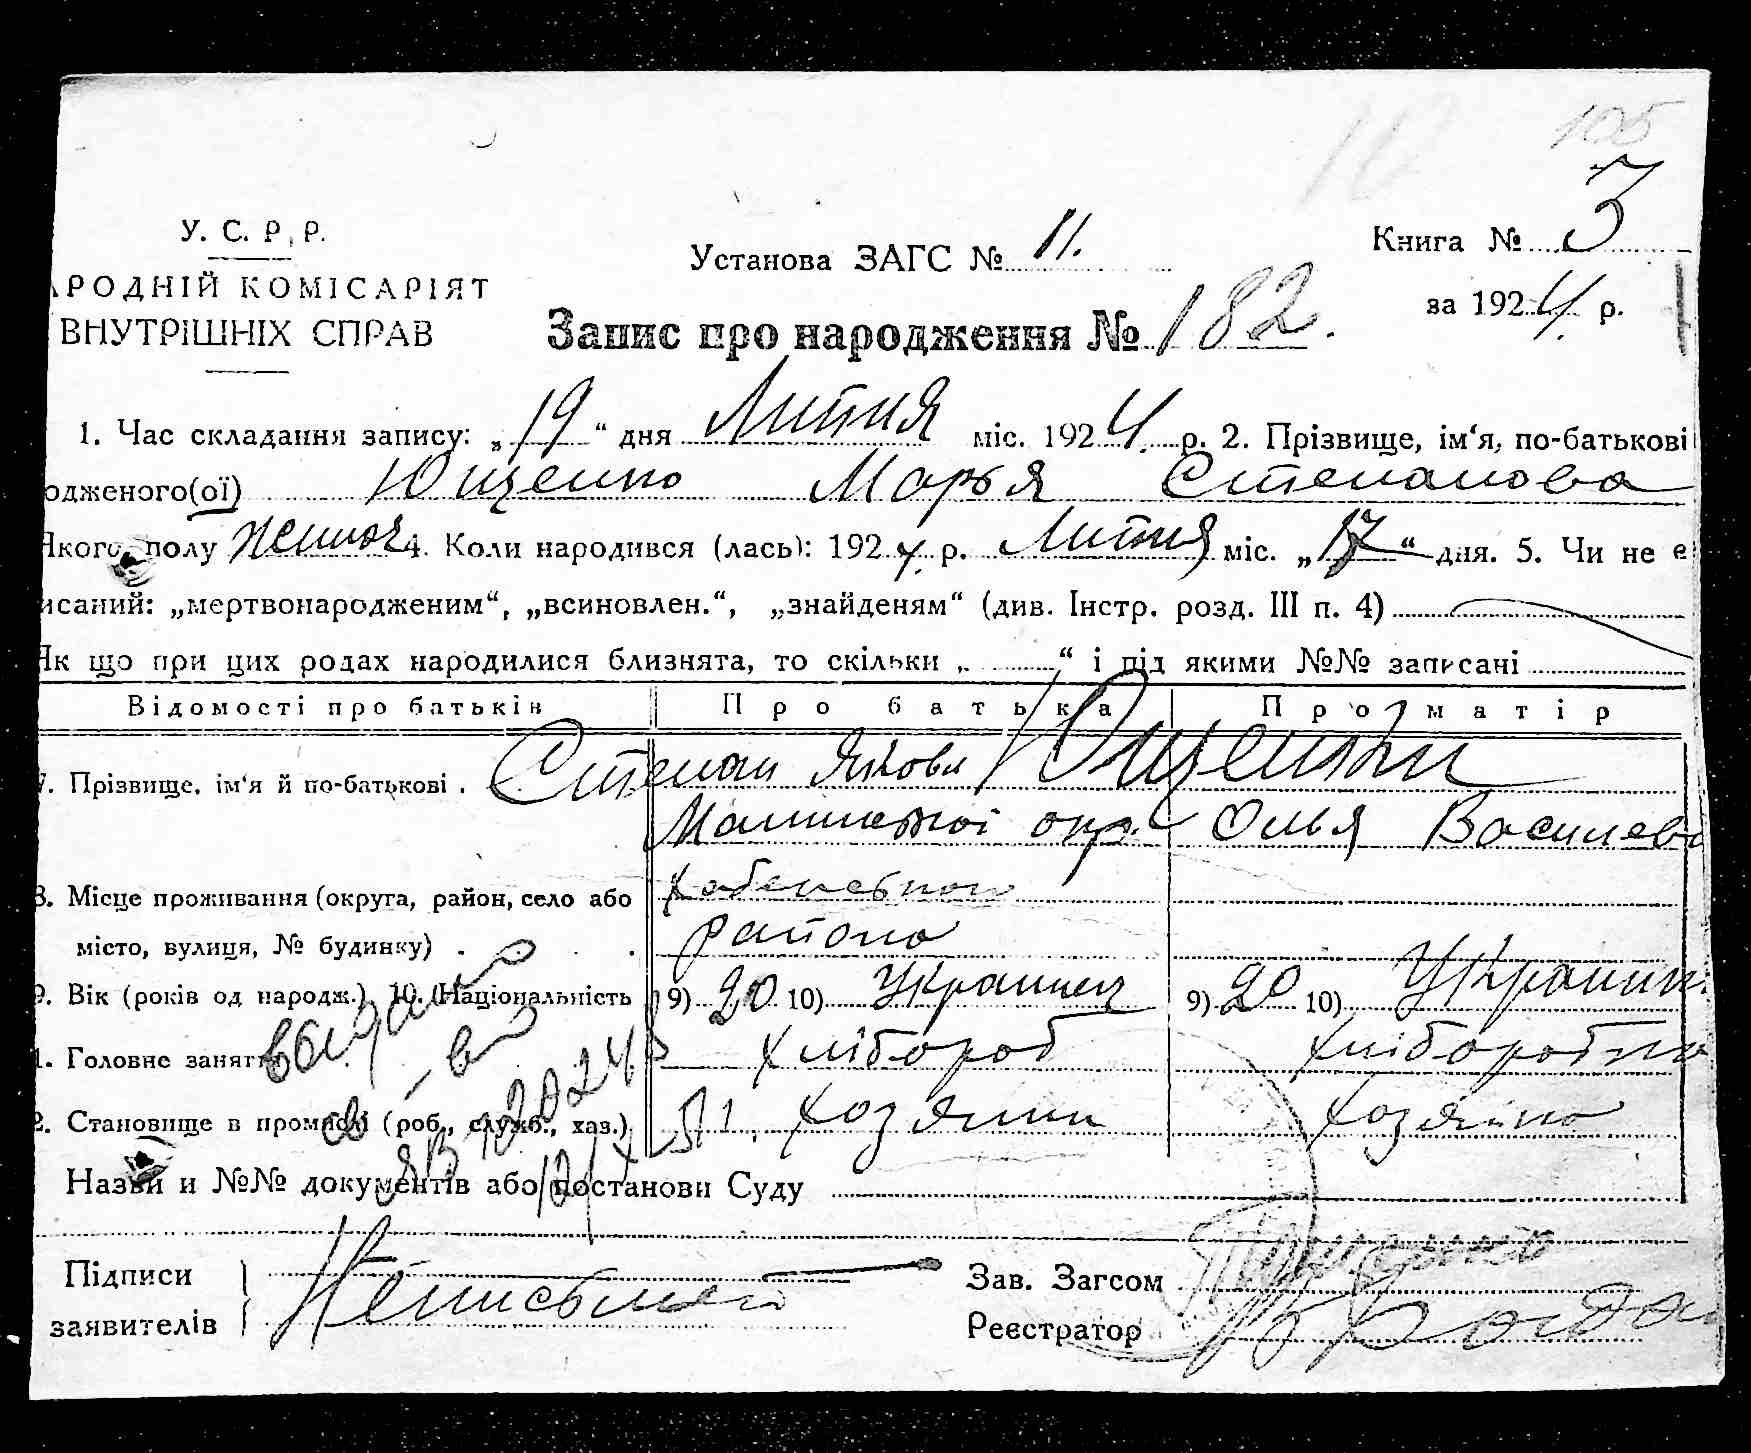 105
У. С. Р. Р.
АРОДНІЙ КОМІСАРІЯТ
ВНУТРІШНІХ СПРАВ
Установа ЗАГС № 11.
Книга № 3
за 1924 р.
Запис про народження № 182.
1. Час складання запису: „19“ дня Липня міс. 1924 р. 2. Прізвище, ім‘я, по-батькові
одженого(ої) Ющенко Марья Степанова
Якого полу женоч 4. Коли народився (лась): 1924 р. Липня міс. „17“ дня. 5. Чи не е
исаний: „мертвонародженим“, „всиновлен.“, „знайденям“ (див. Інстр. розд. III п. 4)
Як що при цих родах народилися близнята, то скільки „ “ і під якими №№ записані
Відомості про батьків Про батька Про матір
7. Прізвище, ім‘я й по-батькові . Степан Яков Ющенки
окр. Олья Василев
8. Місце проживання (округа, район, село або
місто, вулиця, № будинку) . . . района
9. Вік (років од народж.) 10. (Національність 9) 20 10) Украинец 9) 20 10) Украин
1. Головне занят Хлібороб Хліборобка
2. Становище в промислі (роб., служб., хаз.) Хозяин Хозяйка
выдано
св-во
ЯВ
51
Назви и №№ документів або постанови Суду
Підписи
заявителів
Неписьмен
Зав. Загсом
Реєстратор